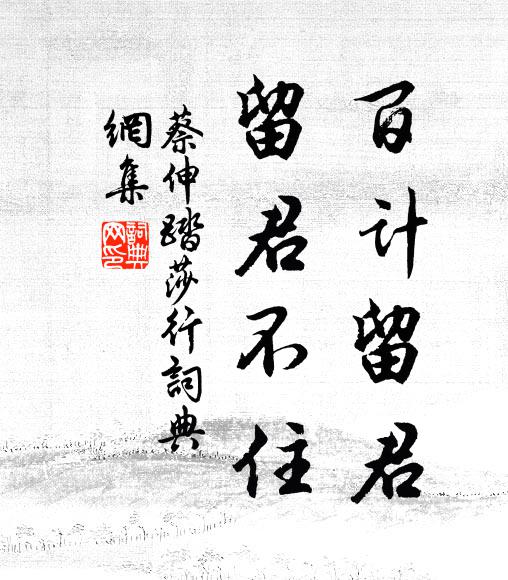 百计留君
留君不住
蔡伸踏莎行词典
網集
詞典
网印